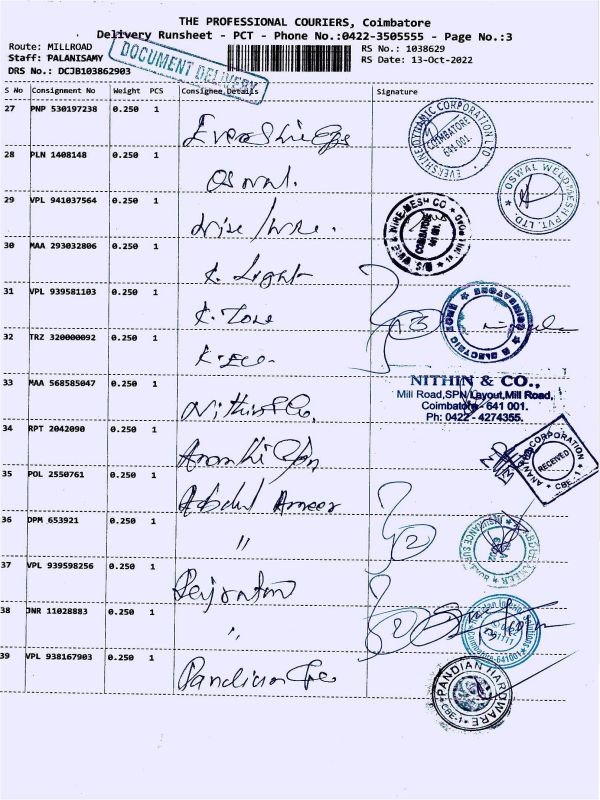 THE PROFESSIONAL COURIERS, Coimbatore
Delivery Runsheet - PCT - Phone No.:0422-3505555 - Page No.:3
Route: MILLROAD
RS No.: 1038629
Staff: PALANISAMY
RS Date: 13-Oct-2022
DRS No.: DCJB103862903
DOCUMENT DELIVERY
S No Consignment No Weight PCS Consighee Details Signature
27 PNP 530197238 0.250 1
EVERSHINEDYNAMIC CORPORATION LTD
COIMBATORE
641 001.
28 PLN 1408148 0.250 1 Oswal.
OSWAL WELDMESH PVT. LTD.
29 VPL 941037564 0.250 1
WIRE MESH CO
COIMBATORE
641 001.
30 MAA 293032806 0.250 1 K. Light
31 VPL 939581103 0.250 1 K. Zone
3
ELECTRIC ZONE
32 TRZ 320000092 0.250 1
33 MAA 568585047 0.250 1 Nithin & Co.
NITHIN & CO.,
Mill Road,SPN Layout,Mill Road,
Coimbatore - 641 001.
Ph: 0422 - 4274355.
34 RPT 2042090 0.250 1
CORPORATION
RECEIVED
CBE-1
35 POL 2550761 0.250 1 Abdul Ameer
36 DPM 653921 0.250 1 "
2
37 VPL 939598256 0.250 1
38 JNR 11028883 0.250 1 "
2
Coimbatore-641001
39 VPL 938167903 0.250 1
PANDIAN HARDWARE
CBE-1